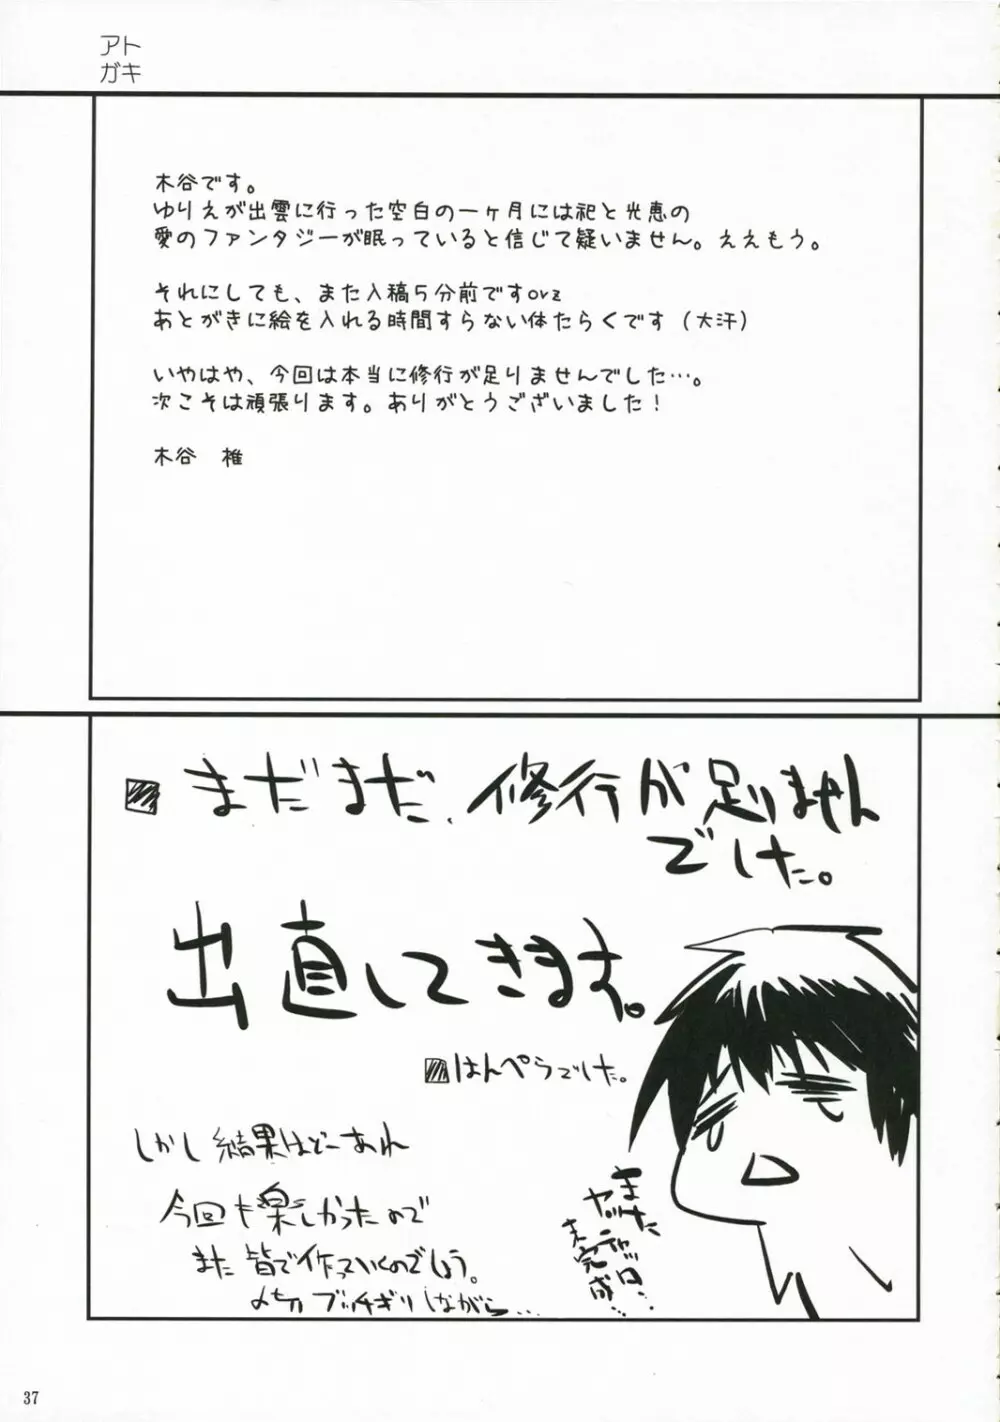 アト
ガキ
木谷です。
ゆりえが出雲に行った空白の一ヶ月には祀と光恵の
愛のファンタジーが眠っていると信じて疑いません。ええもう。
それにしても、また入稿５分前ですorz
あとがきに絵を入れる時間すらない体たらくです（大汗）
いやはや、今回は本当に修行が足りませんでした…。
次こそは頑張ります。ありがとうございました！
木谷　椎
まだまだ、修行が足りません
でした。
出直してきます。
はんぺらでした。
しかし結果はどーあれ
今回も楽しかったので
また皆で作っていくのでしょう。
〆切ブッチギリしながら…
また
ヤッ
チャッタ
未完成…
37